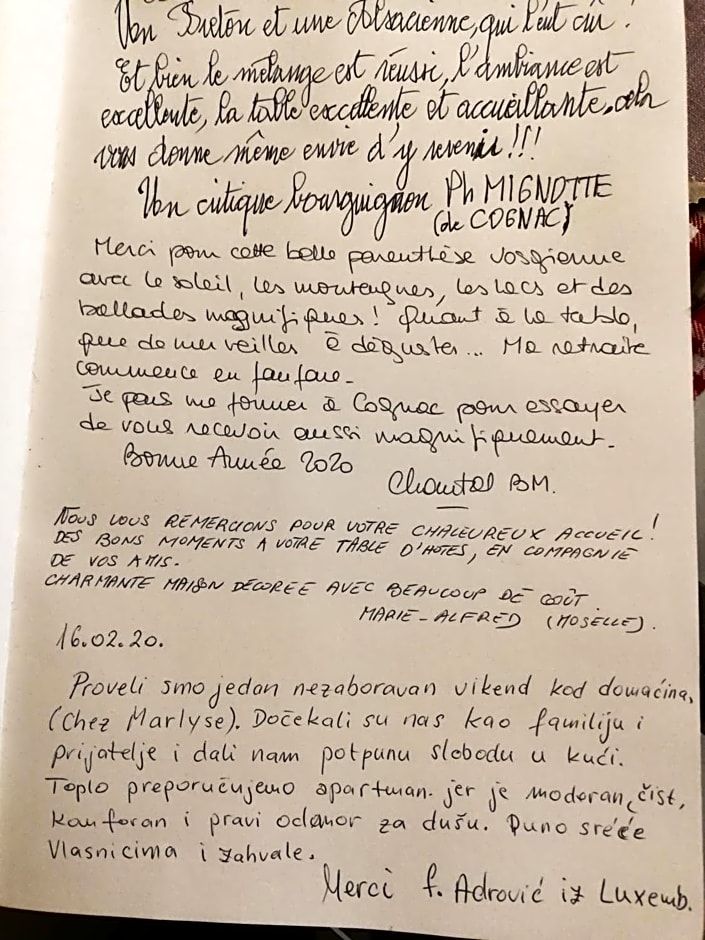 Un Breton et une Alsacienne, qui l'eut cru !
Et bien le mélange est réussi, l'ambiance est
excellente, la table excellente et accueillante, cela
vous donne même envie d'y revenir !!!
Un critique bourguignon Ph MIGNOTTE
(de COGNAC)
Merci pour cette belle parenthèse vosgienne
avec le soleil, les montagnes, les lacs et des
ballades magnifiques ! Quant à la table,
que de merveilles à déguster... Ma retraite
commence en fanfare.
Je pars me former à Cognac pour essayer
de vous recevoir aussi magnifiquement.
Bonne Année 2020
Chantal BM.
NOUS VOUS REMERCIONS POUR VOTRE CHALEUREUX ACCUEIL !
DES BONS MOMENTS A VOTRE TABLE D'HOTES, EN COMPAGNIE
DE VOS AMIS.
CHARMANTE MAISON DECOREE AVEC BEAUCOUP DE GOÛT.
MARIE-ALFRED (MOSELLE).
16.02.20.
Proveli smo jedan nezaboravan vikend kod domaćina,
(Chez Marlyse). Dočekali su nas kao familiju i
prijatelje i dali nam potpunu slobodu u kući.
Toplo preporučujemo apartman. jer je moderan, čist,
komforan i pravi odomor za dušu. Puno sreće
Vlasnicima i zahvale.
Merci f. Adrović iz Luxemb.